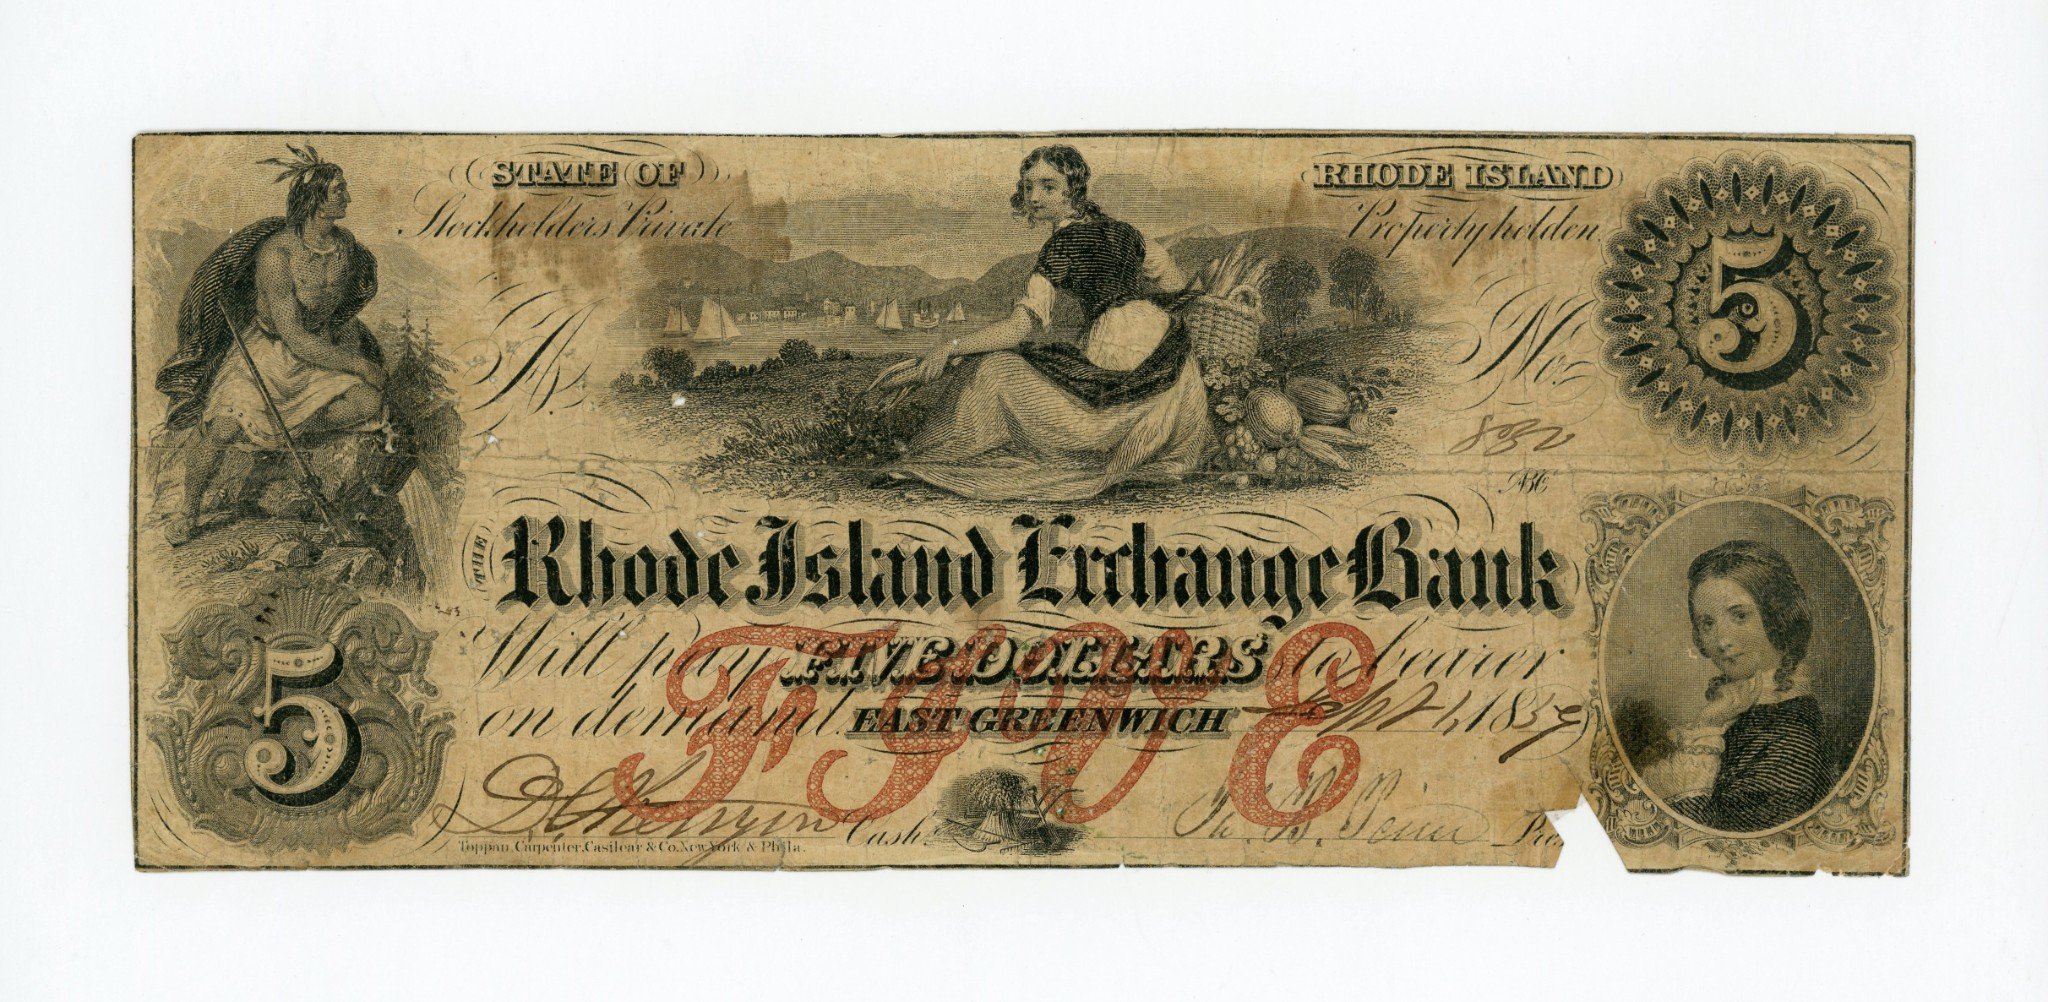 STATE OF RHODE ISLAND
Stockholders Private Property holden
5
No.
ABC
THE Rhode Island Exchange Bank
Will pay FIVE DOLLARS to bearer
on demand EAST GREENWICH Sept 1, 1859
FIVE
5
Cash.
Pres.
Toppan, Carpenter, Casilear & Co. New York & Phila.